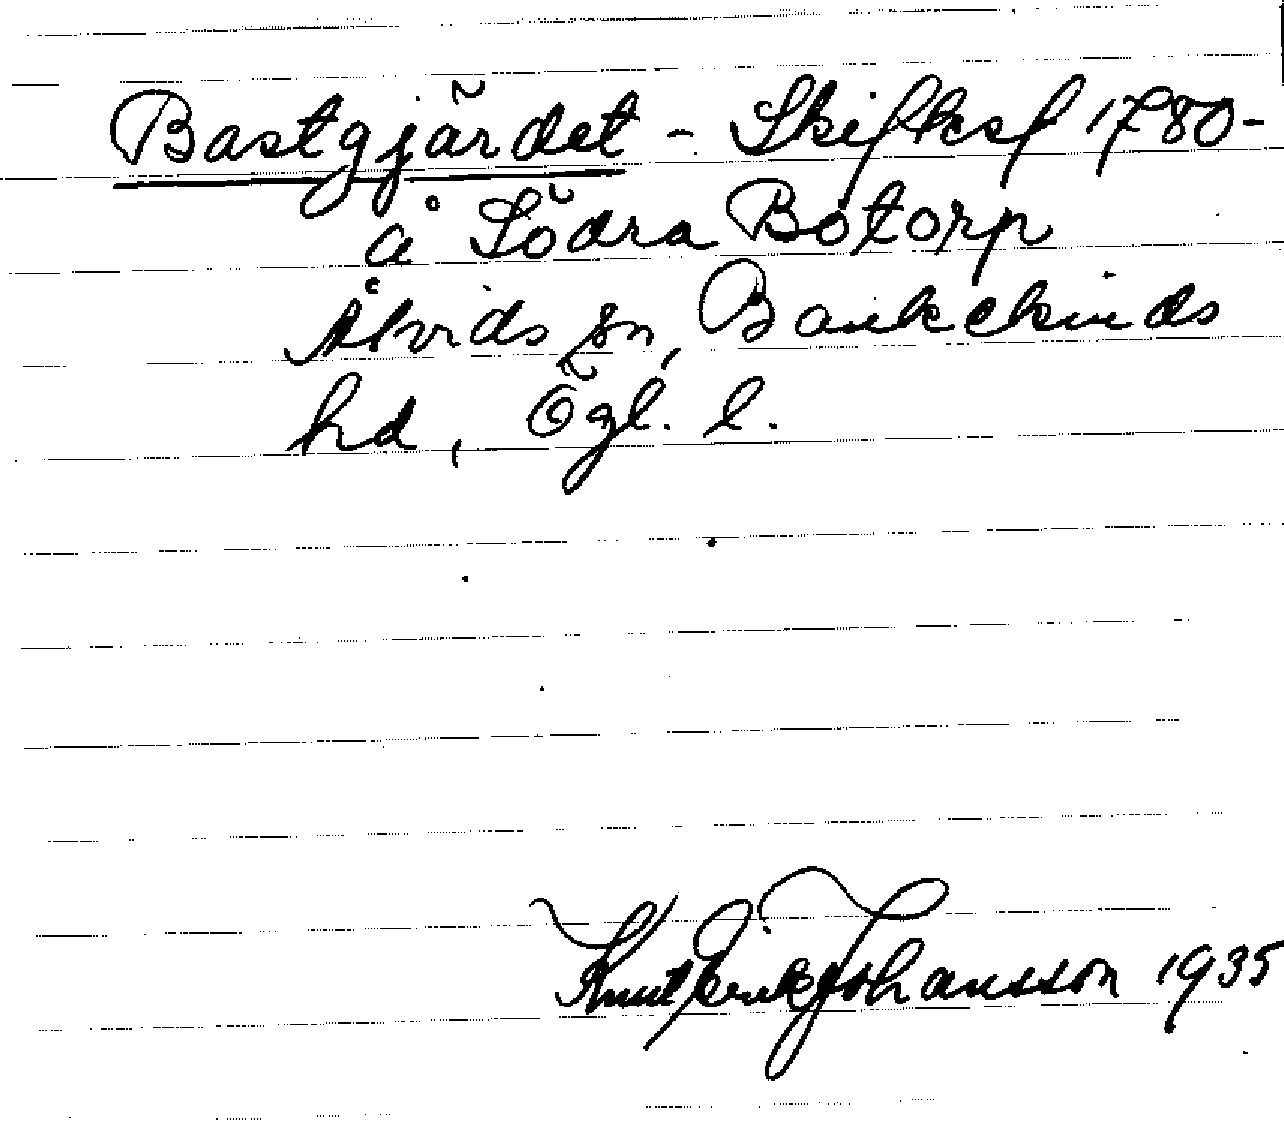 Bastgjärdet - Skifteskf 1780-
å Södra Botorp
Åtvids sn, Bankekinds
hd, Ögl. l.
Knut Erik Johansson 1935